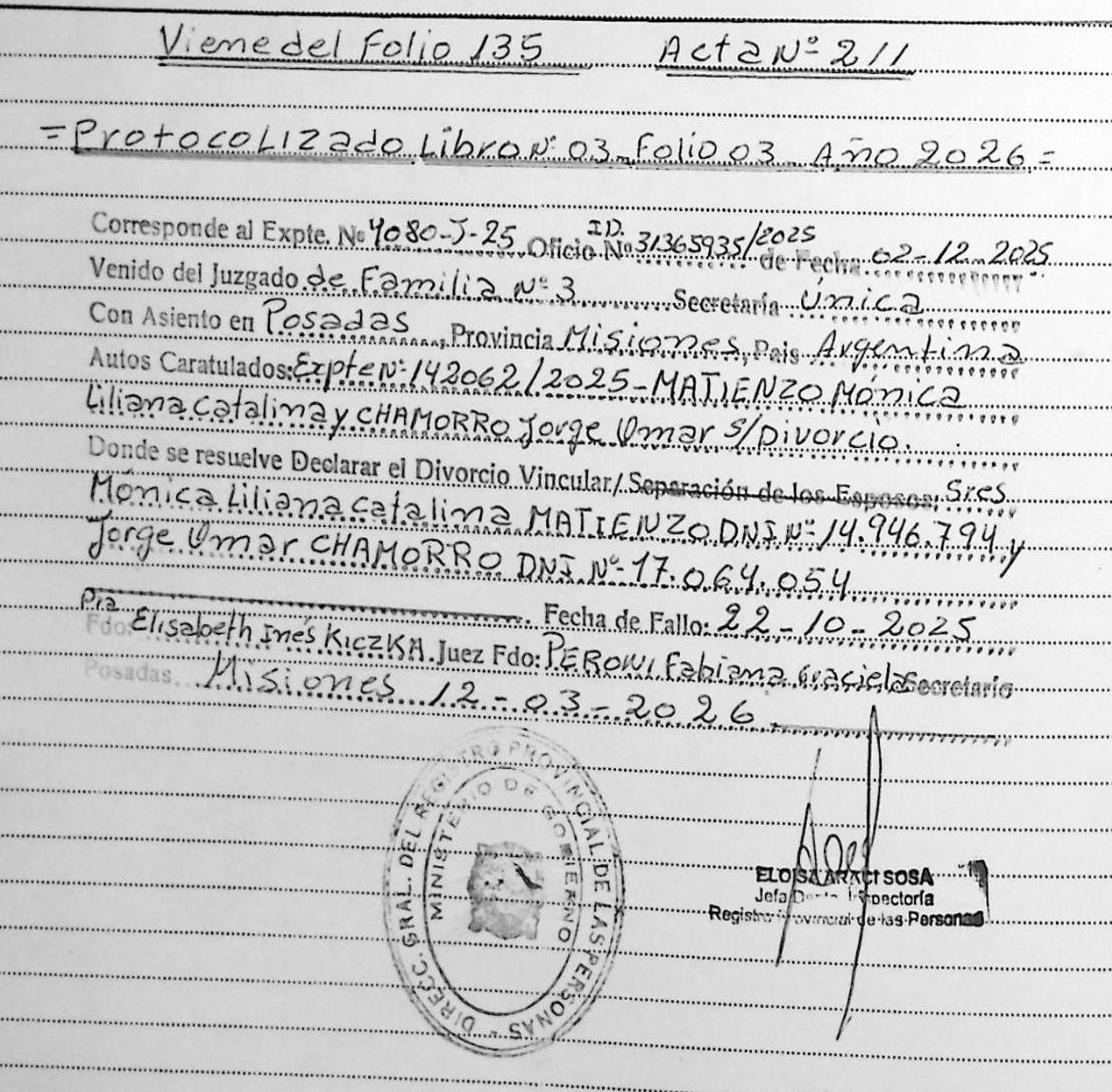 Viene del Folio 135 Acta Nº 211
=Protocolizado Libro Nº 03 Folio 03 Año 2026=
Corresponde al Expte. Nº 4080-J-25 Oficio ID. Nº 31365935/2025 de Fecha: 02-12-2025
Venido del Juzgado de Familia Nº 3 Secretaría Única
Con Asiento en Posadas, Provincia Misiones, Pais Argentina
Autos Caratulados: Expte Nº 142062/2025-MATIENZO Mónica
Liliana Catalina y CHAMORRO Jorge Omar S/Divorcio.
Donde se resuelve Declarar el Divorcio Vincular/ Separación de los Esposos; Sres
Mónica Liliana Catalina MATIENZO DNI Nº 14.946.794 y
Jorge Omar CHAMORRO DNI Nº 17.064.054
Fecha de Fallo: 22-10-2025
Fdo: Dra Elisabeth Inés KICZKA. Juez Fdo: PERONI Fabiana Graciela Secretario
Posadas, Misiones 12-03-2026
DIREC. GRAL. DEL REGISTRO PROVINCIAL DE LAS PERSONAS -
MINISTERIO DE GOBIERNO
ELOISA ARACI SOSA
Jefa Inspectoría
Registro Provincial de las Personas